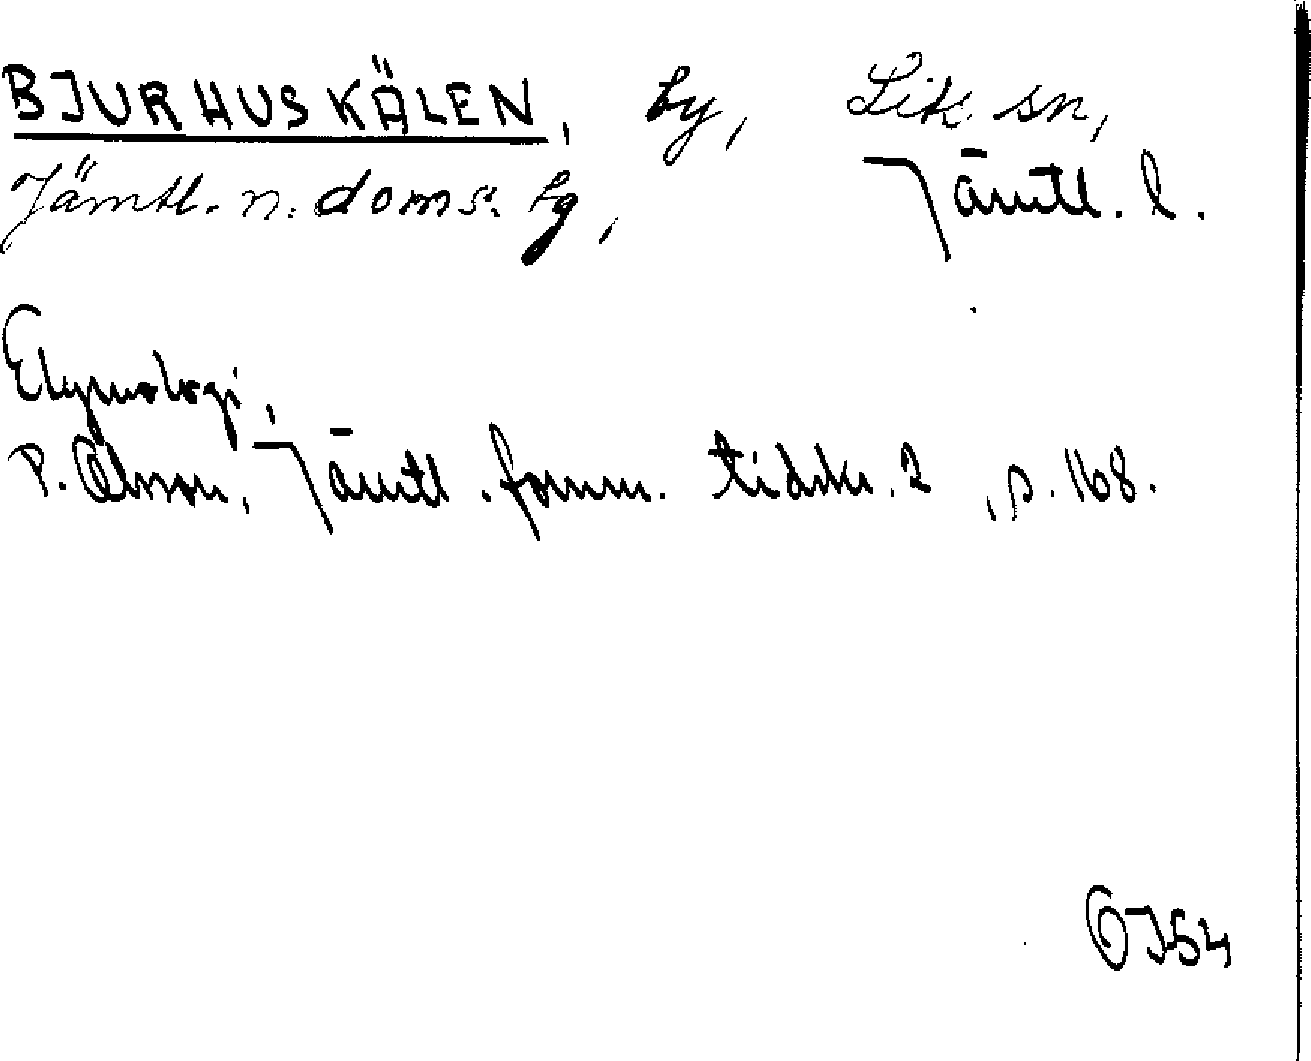 BJURHUSKÄLEN, by, Lik. sn,
Jämtl. n. doms. hg, Jämtl. l.
Etymologi,
P. Olsson, Jämtl. fornm. tidskr. 2, s. 168.
OJ54